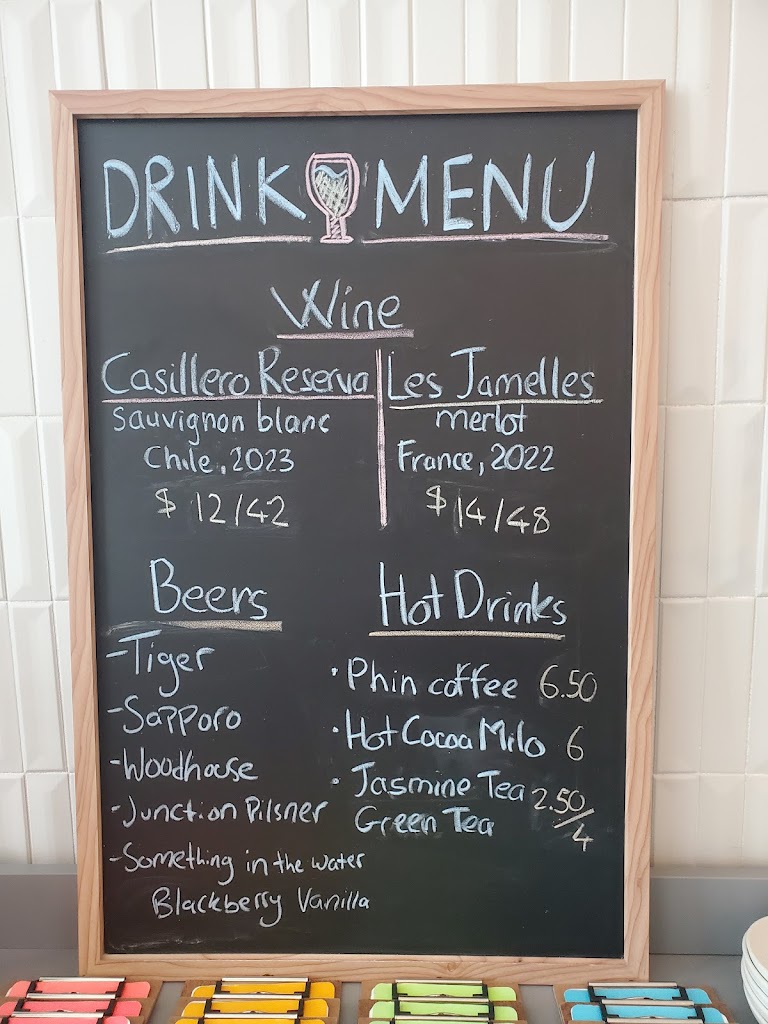 DRINK MENU
Wine
Casillero Reserva
Sauvignon blanc
Chile, 2023
$ 12/42
Les Jamelles
merlot
France, 2022
$ 14/48
Beers
-Tiger
-Sapporo
-Woodhouse
-Junction Pilsner
-Something in the water
Blackberry Vanilla
Hot Drinks
• Phin coffee 6.50
• Hot Cocoa Milo 6
• Jasmine Tea 2.50/4
Green Tea